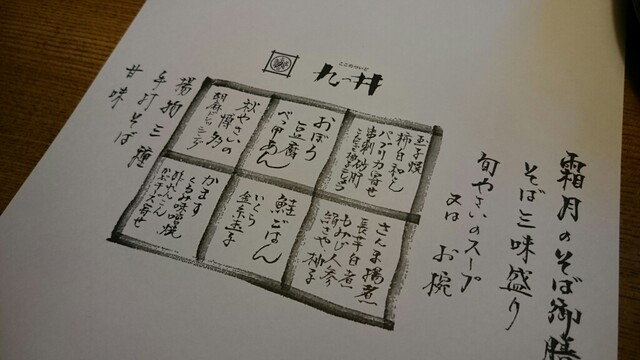 霜月のそば御膳
そば三味盛り
旬やさいのスープ
又は お椀
ここのついど
九つ井
玉子焼
柿白和え
パプリカ寄せ
串刺砂肝
おぼろ
豆腐
べっ甲あん
秋やさいの
博多
胡麻ドレッシング
さんま揚煮
長芋白煮
もみじ人参
絹さや 柚子
鮭ごはん
いくら
金糸玉子
かます
くるみ味噌焼
酢れんこん
かぼチーズ寄せ
揚物三種
手打そば
甘味